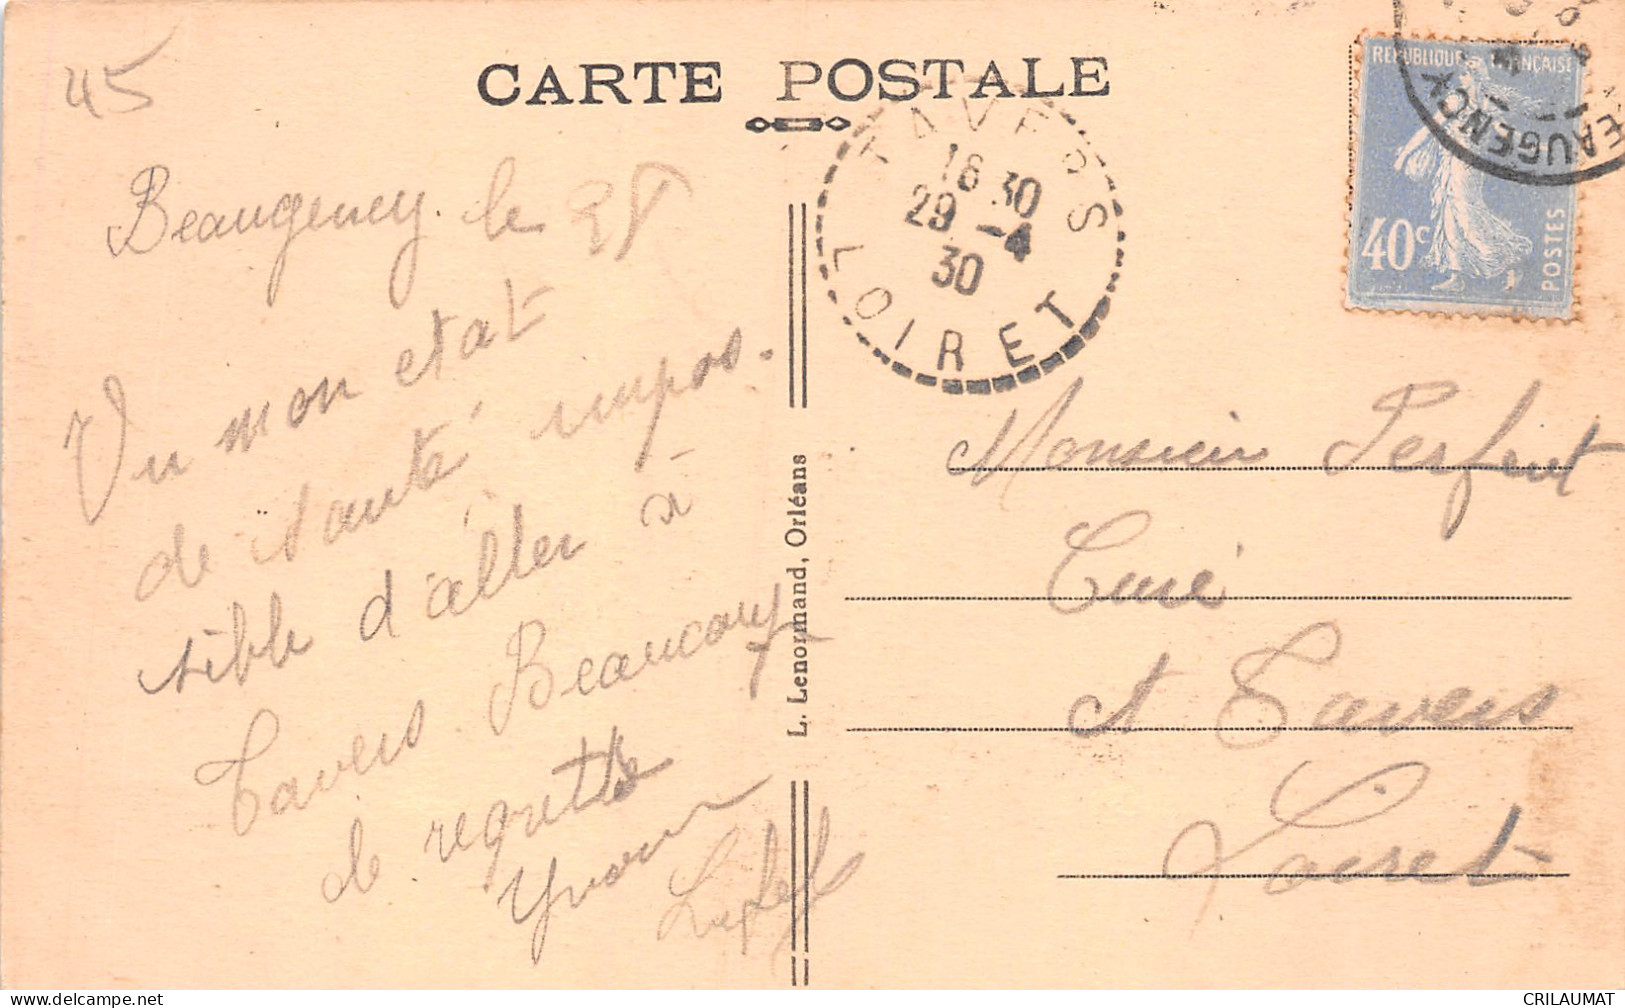 45
CARTE POSTALE
TAVERS
16 30
29 -4
30
LOIRET
REPUBLIQUE FRANÇAISE
40c
POSTES
BEAUGENCY
Beaugency le 28
Vu mon etat
de santé impos-
sible d'aller à
Tavers Beaucoup
de regrette
Yvonne
L. Lenormand, Orléans
Monsieur Perfeut
Curé
à Tavers
Loiret
CRILAUMAT